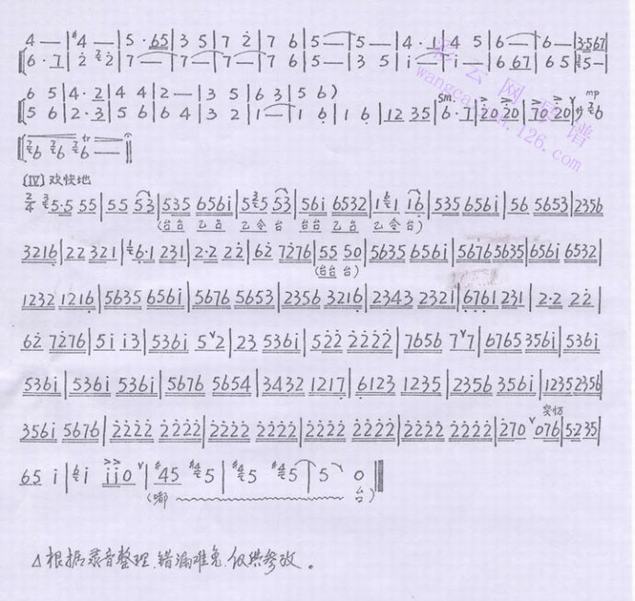 4 — | #4 — | 5 · 65 | 3 5 | 7 2̇ | 7 6 | 5 — | 5 — | 4 · 1 | 4 5 | 6 — | 6 — | 3·567 |
6 · 7 | 2̇ 2̇ | 7 — | 7 — | 7 — | 7 6 | 5 — | 3 5 | i — | i — | 6 67 | 6 5 | 5 — |
6 5 | 4 · 2 | 4 4 | 2 — | 3 5 | 6 3 | 5 6 )
5 6 | 2 · 3 | 5 6 | 6 4 | 3 2 | 1 — | 1 6̣ | 1 6̣ | 12 35 | 6 · 7 | 2̇0 2̇0 | 2̇0 2̇0 | 6 mp
6 6 6 tr —
(IV) 欢快地
2/4 5·5 55 | 55 53 | 535 656i | 5 5 53 | 56i 6532 | 1 1 16̣ | 535 656i | 56 5653 | 2356
(台台 乙台 乙令台 台台 乙台 乙令台)
3216̣ | 22 321 | 6̣·1 231 | 2·2 22̇ | 62̇ 7276 | 55 50 | 5635 656i | 5676 5635 | 656i 6532 |
(台台 台)
1232 1216̣ | 5635 656i | 5676 5653 | 2356 3216̣ | 2343 2321 | 6̣7̣6̣1 231 | 2·2 22̇ |
62̇ 72̇76 | 5i i3 | 536i 5ᵛ2 | 23 536i | 52̇2̇ 2̇2̇2̇2̇ | 7656 7ᵛ7 | 6765 356i | 536i
536i | 536i 536i | 5676 5654 | 3432 1217̣ | 6̣123 1235 | 2356 356i | 1235 2356
356i 5676 | 2̇2̇2̇2̇ 2̇2̇2̇2̇ | 2̇2̇2̇2̇ 2̇2̇2̇2̇ | 2̇2̇2̇2̇ 2̇2̇2̇2̇ | 2̇2̇2̇2̇ 2̇2̇2̇2̇ | 2̇70 ᵛ076 | 5·235 |
65 i | i ii0 ᵛ | #45 #45 | #45 #45 | 5 0
(嘟 台)
△根据录音整理,错漏难免,仅供参考。